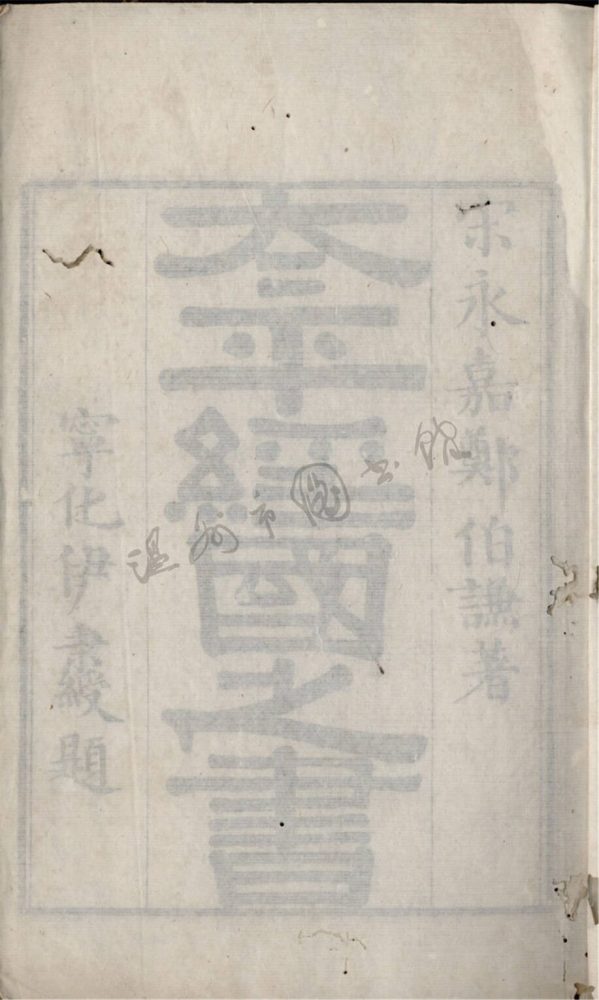 宋永嘉鄭伯謙著
太平經國之書
寧化伊秉綬題
温州市圖书馆